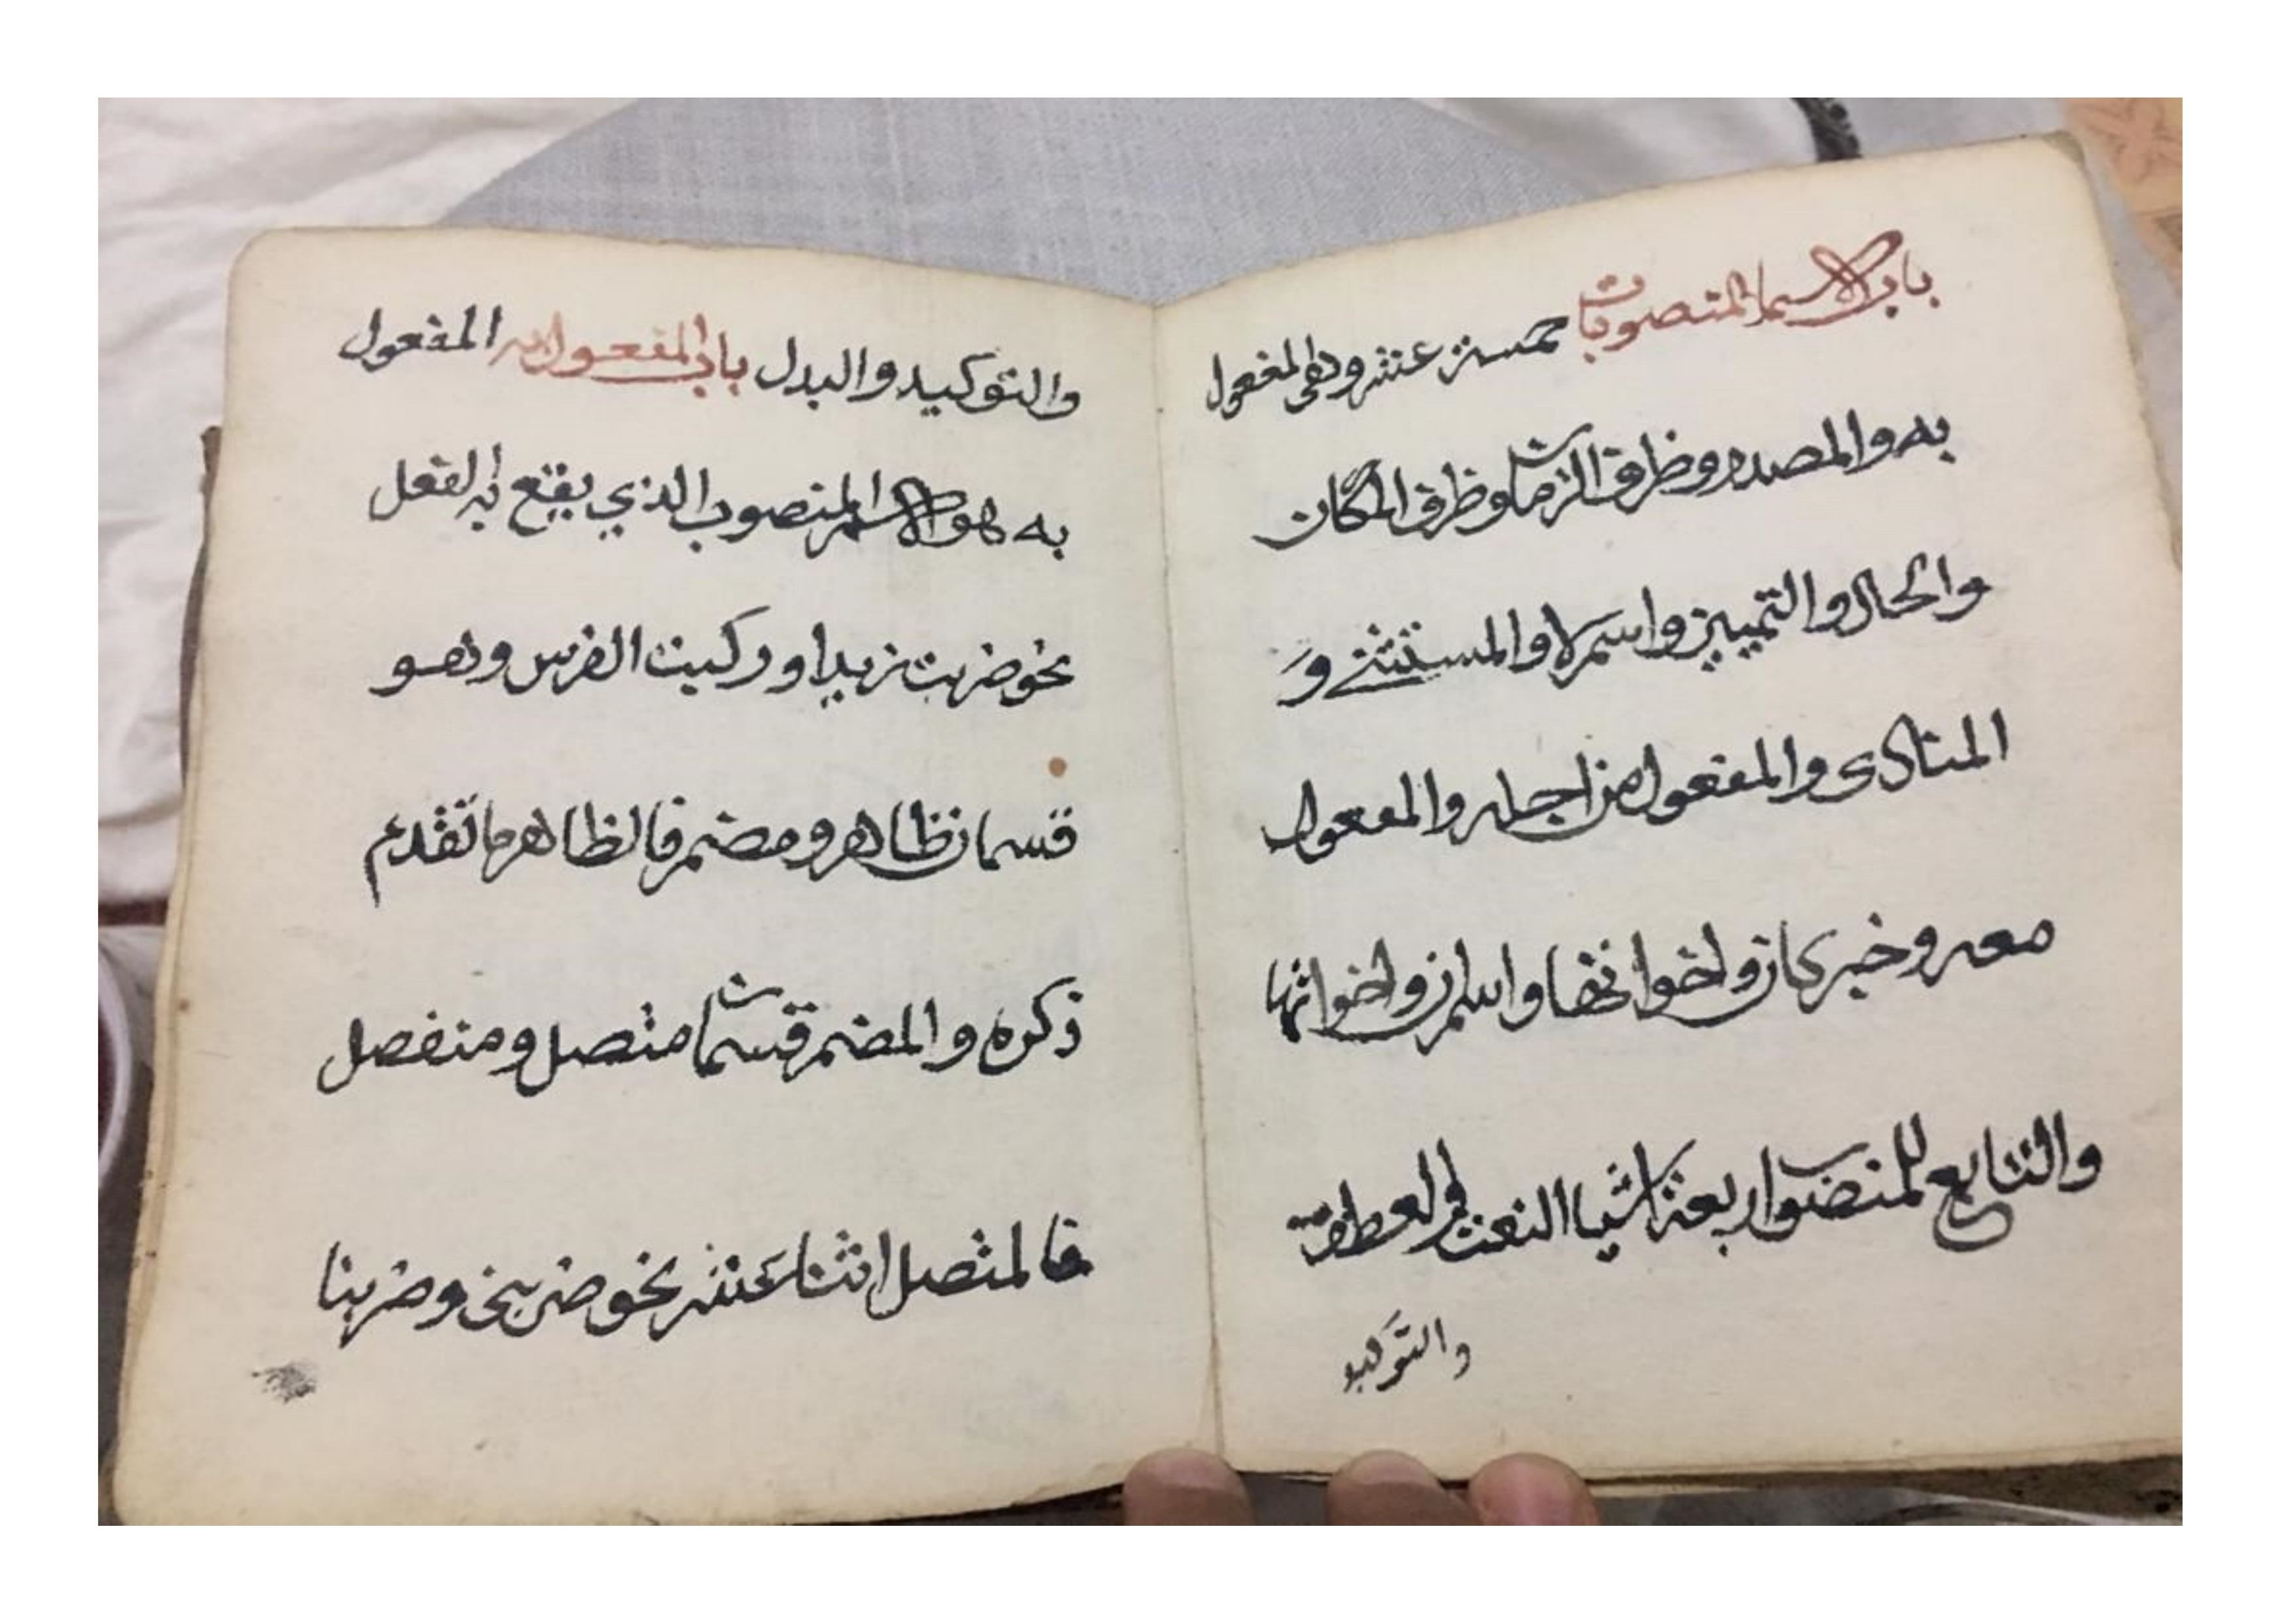 باب الاسما المنصوبات خمسة عشر وهى المفعول
به والمصدر وظرف الزمان وظرف المكان
والحال والتمييز واسم لا والمستثنى و
المنادى والمفعول من اجله والمفعول
معه وخبر كان واخواتها واسم ان واخواتها
والتابع للمنصوب اربعة اشيا النعت والعطف
والتوكيد
والتوكيد والبدل باب المفعول به المفعول
به هو الاسم المنصوب الذي يقع به الفعل
نحو ضربت زيدا وركبت الفرس وهو
قسمان ظاهر ومضمر فالظاهر ما تقدم
ذكره والمضمر قسمان متصل ومنفصل
فالمتصل اثنا عشر نحو ضربني وضربنا